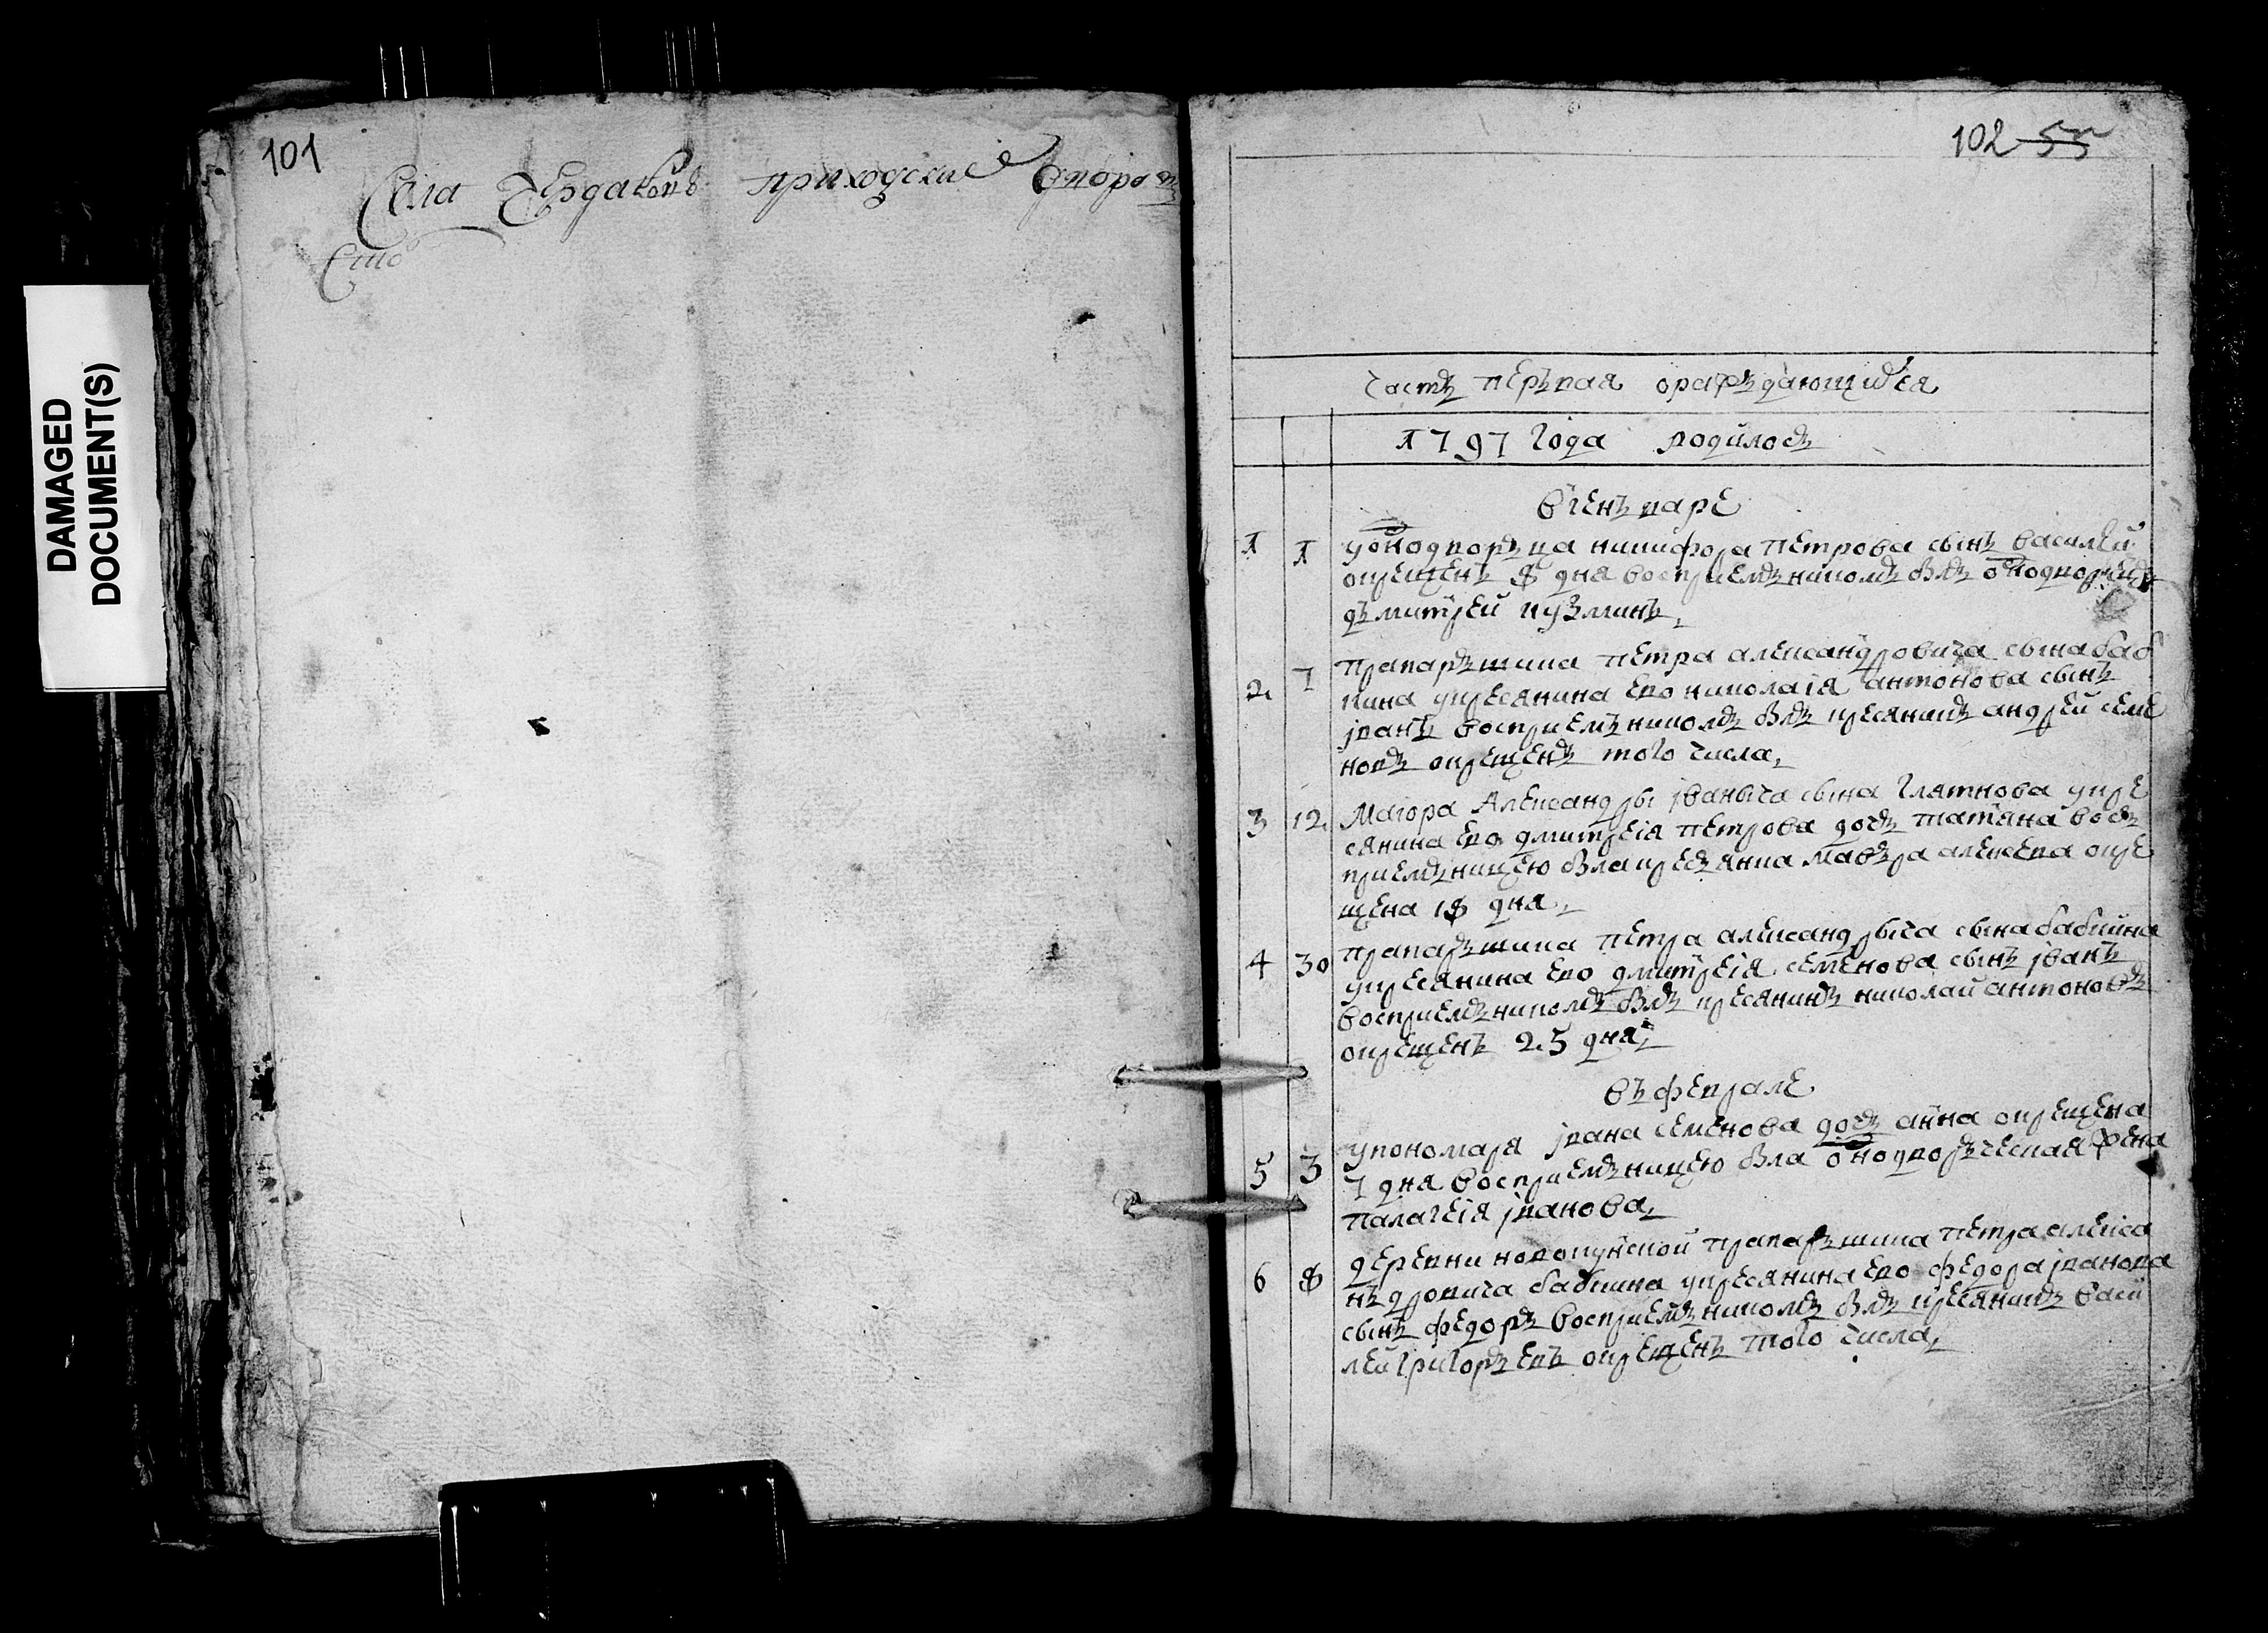 101
Села Чердаковъ приходские
102 55
DAMAGED
DOCUMENT(S)
часть перъвая оражъдающихся
1797 года родилось
въгенъваре
1 1 уоднодворъца никифора петрова сынъ василей
окрещенъ 8 дня восприемъникомъ былъ однодворецъ
дъмитрей кузминъ,
2 7 прапаръшика петра александровича сына баб
кина укресянина ево николаія антонова сынъ
јванъ восприемъникомъ былъ кресянинъ андрей семе
новъ окрещенъ того числа,
3 12 Маіора Александры јваныча сына глятнова укре
сянина ево дмитреія петрова дочь татяна вось
приемъницею была кресъянка мавъра алексева окре
щена 18 дня,
4 30 прапаръшика петра александрыча сына бабкина
укресянина ево дмитреія семенова сынъ јванъ
восприемъникомъ былъ кресянинъ николай антоновъ
окрещенъ 25 дня,
въ феврале
5 3 упономаря јвана семенова дочь анна окрещена
7 дня восприемъницею была однодворъческая жена
палагеія јванова,
6 8 деревни новопунской прапаръшика петра алекса
нъдровича бабкина укресянина ево федора јванова
сынъ федоръ восприемъникомъ былъ кресянинъ васи
лей григоръевъ окрещенъ того числа,